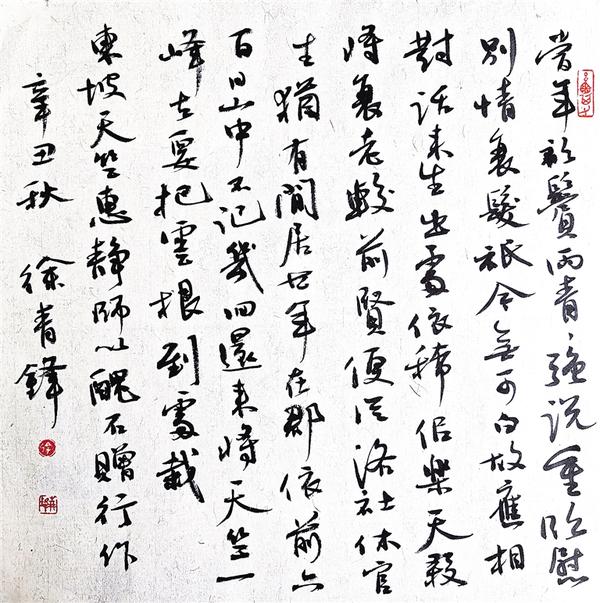 當年衫鬢兩青、強說重臨慰
別情衰髮祇今無可白故應相
對話來生出處依稀佀樂天敢
將衰老較前賢便從洛社休官
去猶有閒居廿年在郡依前六
百日山中不記幾回還來將天竺一
峰去要把雲根到處栽
東坡天竺惠靜師以醜石贈行作
辛丑秋 徐青鋒